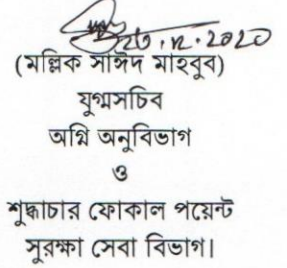 ২৬.১২.২০২০
(মল্লিক সাঈদ মাহবুব)
যুগ্মসচিব
অগ্নি অনুবিভাগ
ও
শুদ্ধাচার ফোকাল পয়েন্ট
সুরক্ষা সেবা বিভাগ।